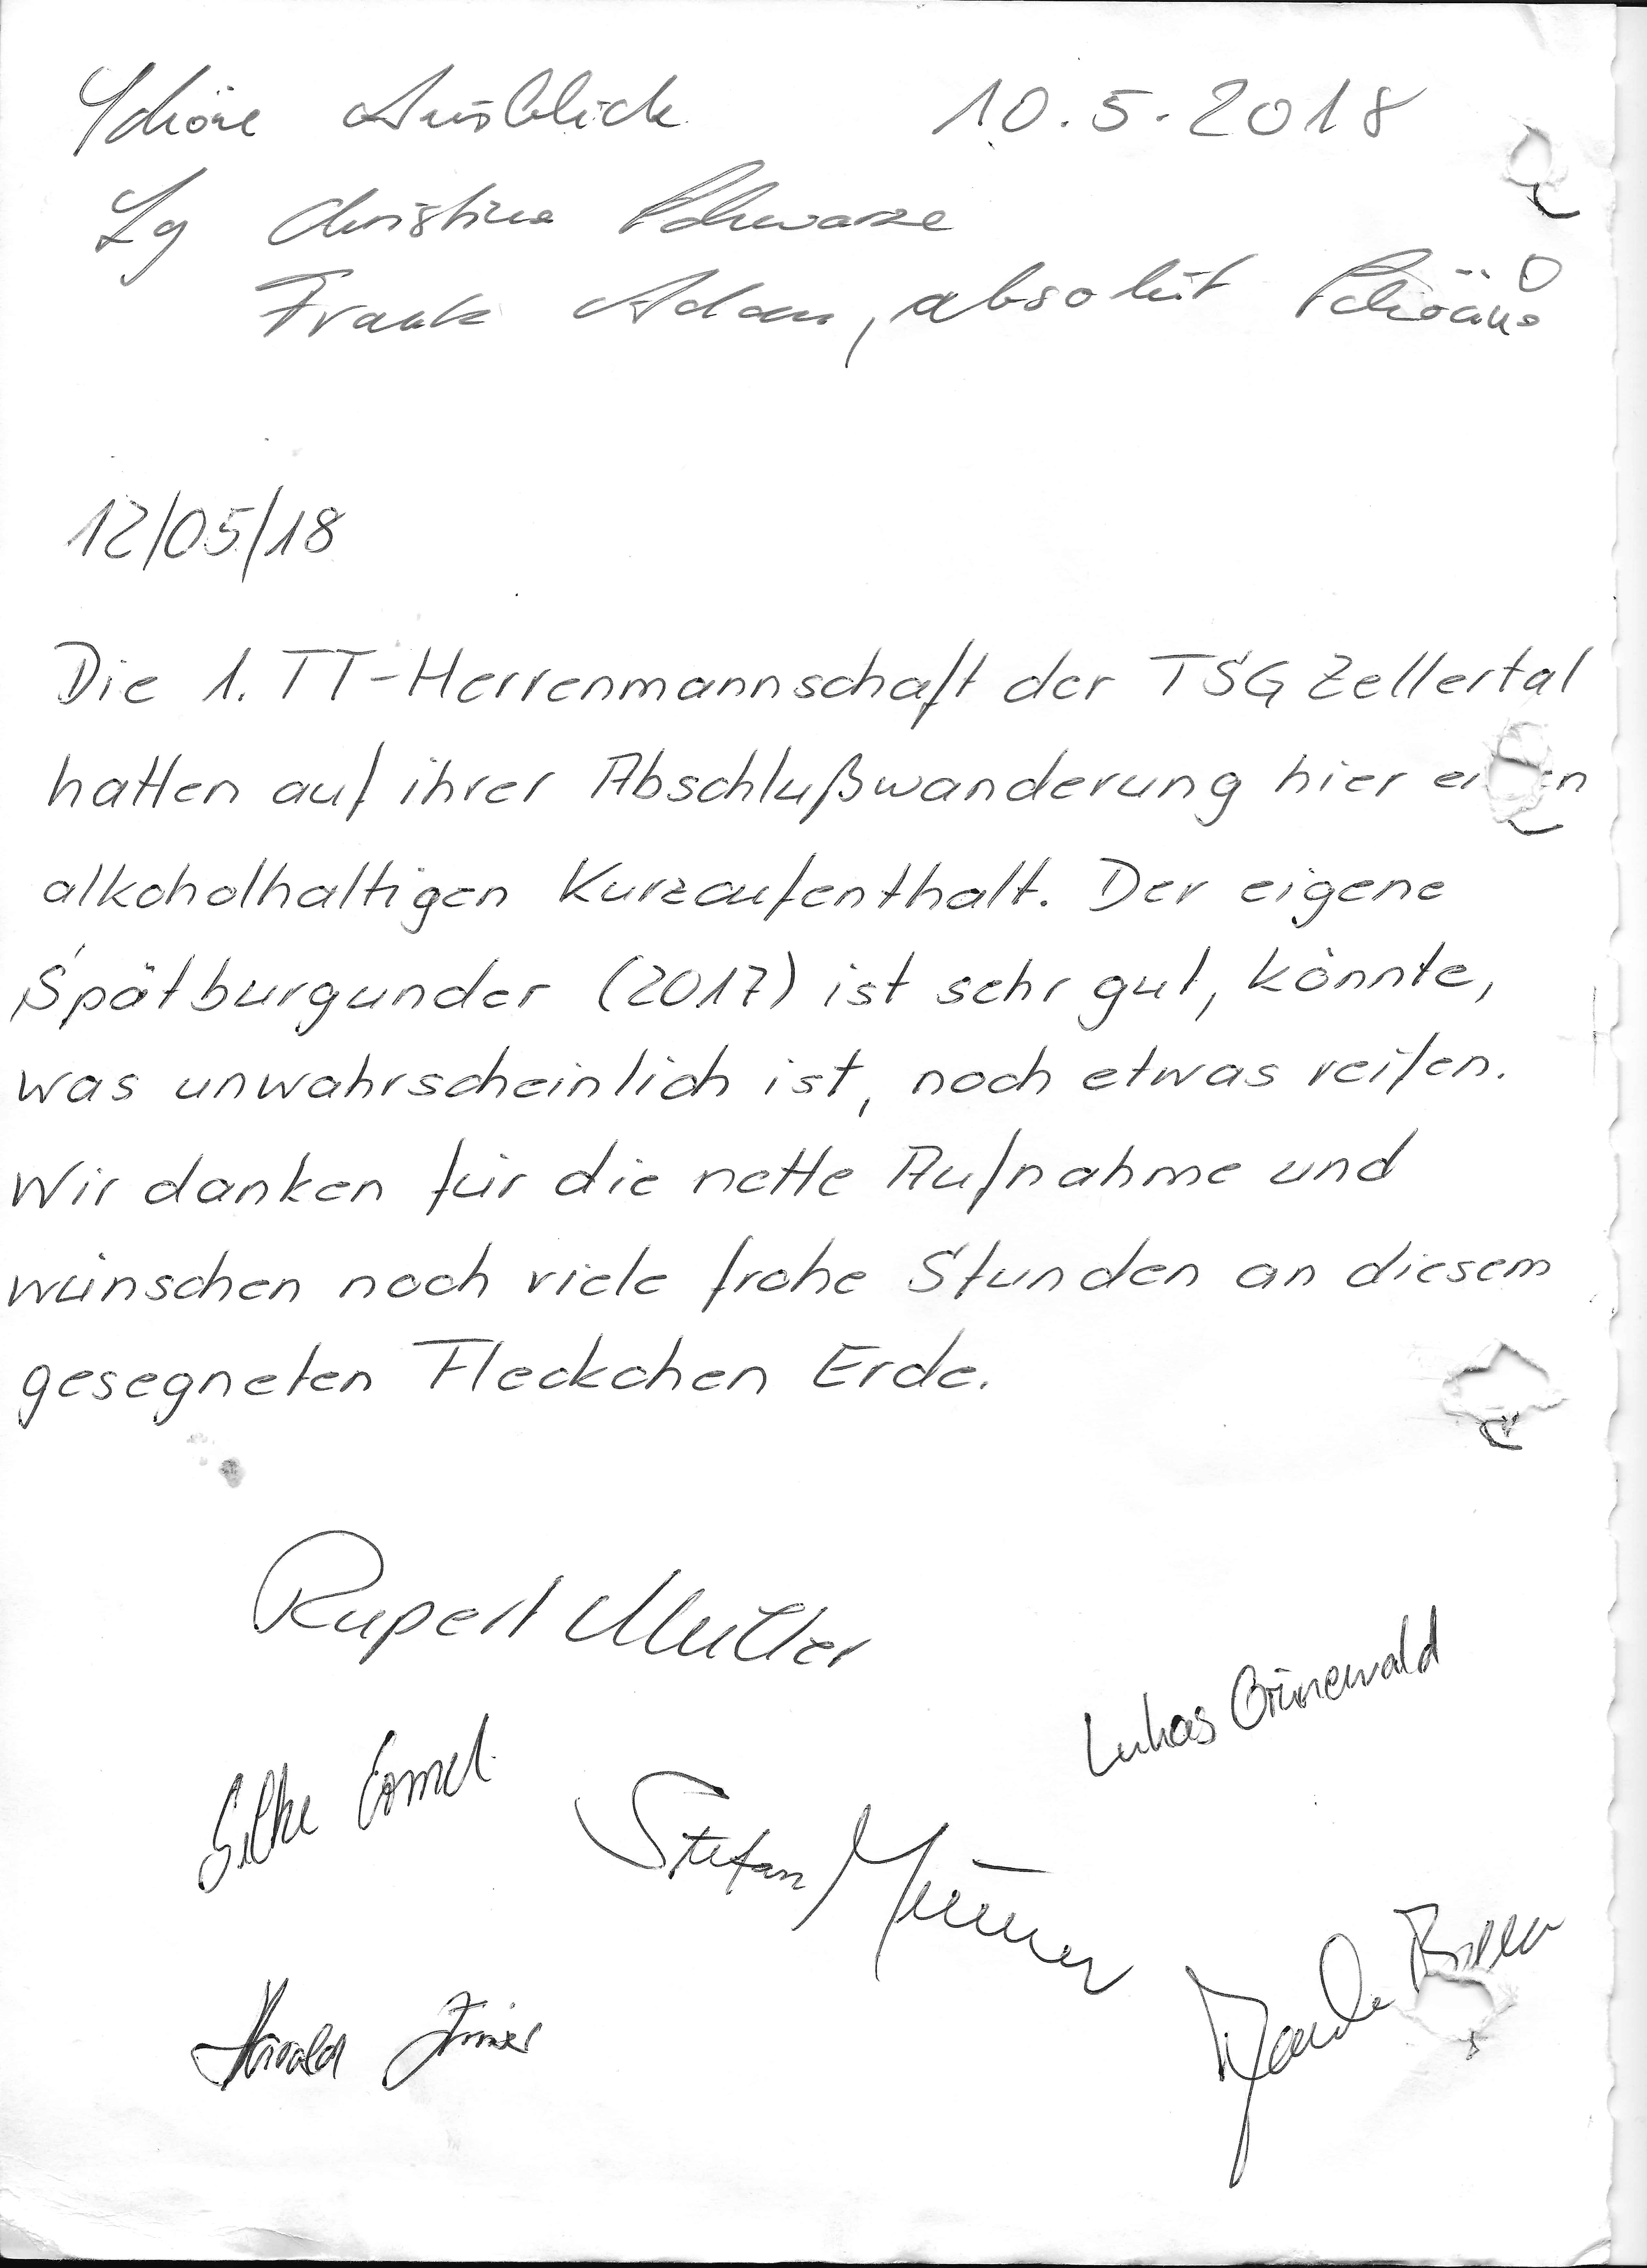 Schöne Ausblick 10.5.2018
Lg Christina Schwarze
Frank Adam, absolut
12/05/18
Die 1. TT-Herrenmannschaft der TSG Zellertal
hatten auf ihrer Abschlußwanderung hier einen
alkoholhaltigen Kurzaufenthalt. Der eigene
Spätburgunder (2017) ist sehr gut, könnte,
was unwahrscheinlich ist, noch etwas reifen.
Wir danken für die nette Aufnahme und
wünschen noch viele frohe Stunden an diesem
gesegneten Fleckchen Erde.
Rupert Müller
Lukas Grünewald
Silke
Stefan
Harald